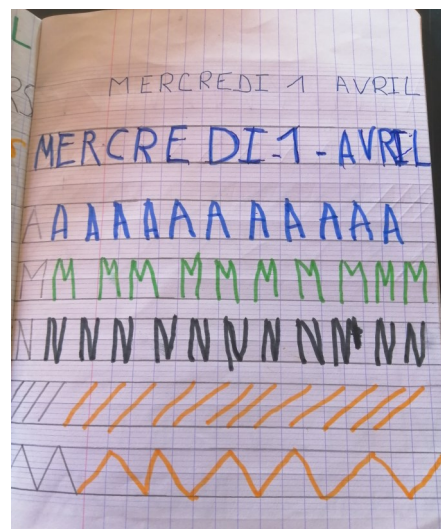 MERCREDI 1 AVRIL
MERCREDI-1-AVRIL
A A A A A A A A A A A A
M M M M M M M M M M M
N N N N N N N N N N N N